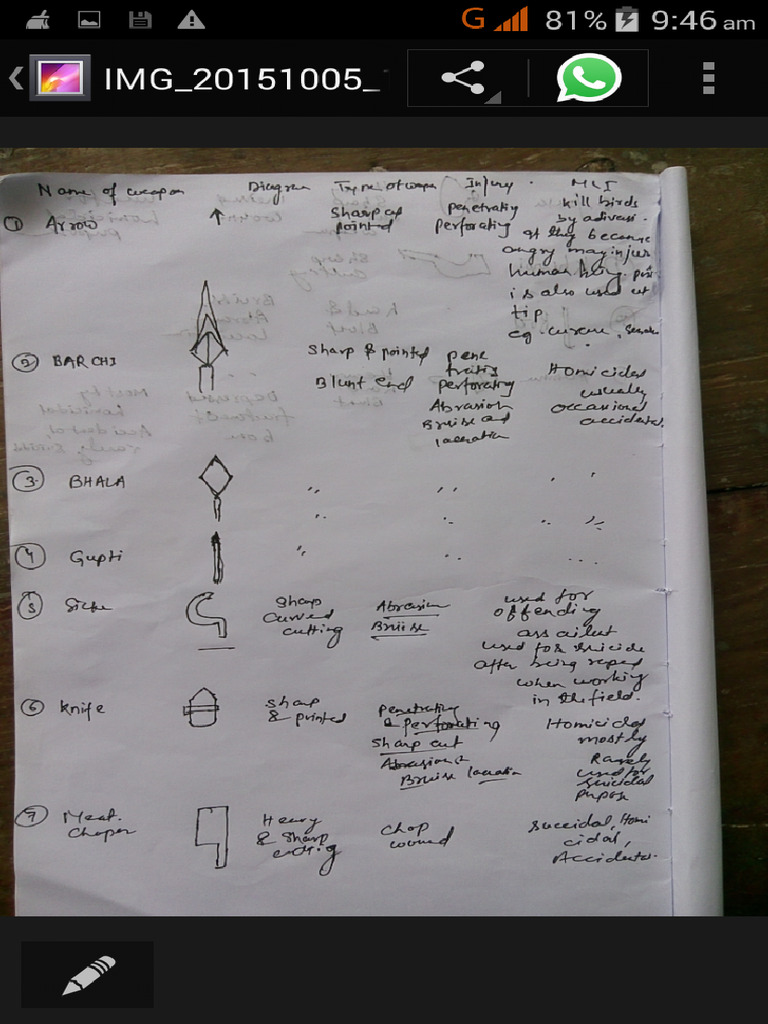 G 81% 9:46 am
IMG_20151005_
Name of weapon Diagram Type of weapon Injury MLI
① Arrow Sharp and pointed penetrating perforating kill birds
by adivasi.
if they become
angry may injure
human being.
is also used at
tip
eg. curare,
② BARCHI Sharp & pointed penetrating Homicidal
Blunt end perforating usually
Abrasion occasional
Bruise and accidental.
laceration
③ BHALA " " "
" " "
④ Gupti " " "
⑤ Sickle Sharp Abrasion used for
curved Bruise offending
cutting assailant
used for suicide
after being raped
when working
in the field.
⑥ Knife Sharp penetrating Homicidal
& pointed & perforating mostly
Sharp cut Rarely
Abrasion & used for
Bruise laceration suicidal
purpose
⑦ Meat. Heavy Chop suicidal, Homi
Choper & Sharp wound cidal,
cutting Accidental.